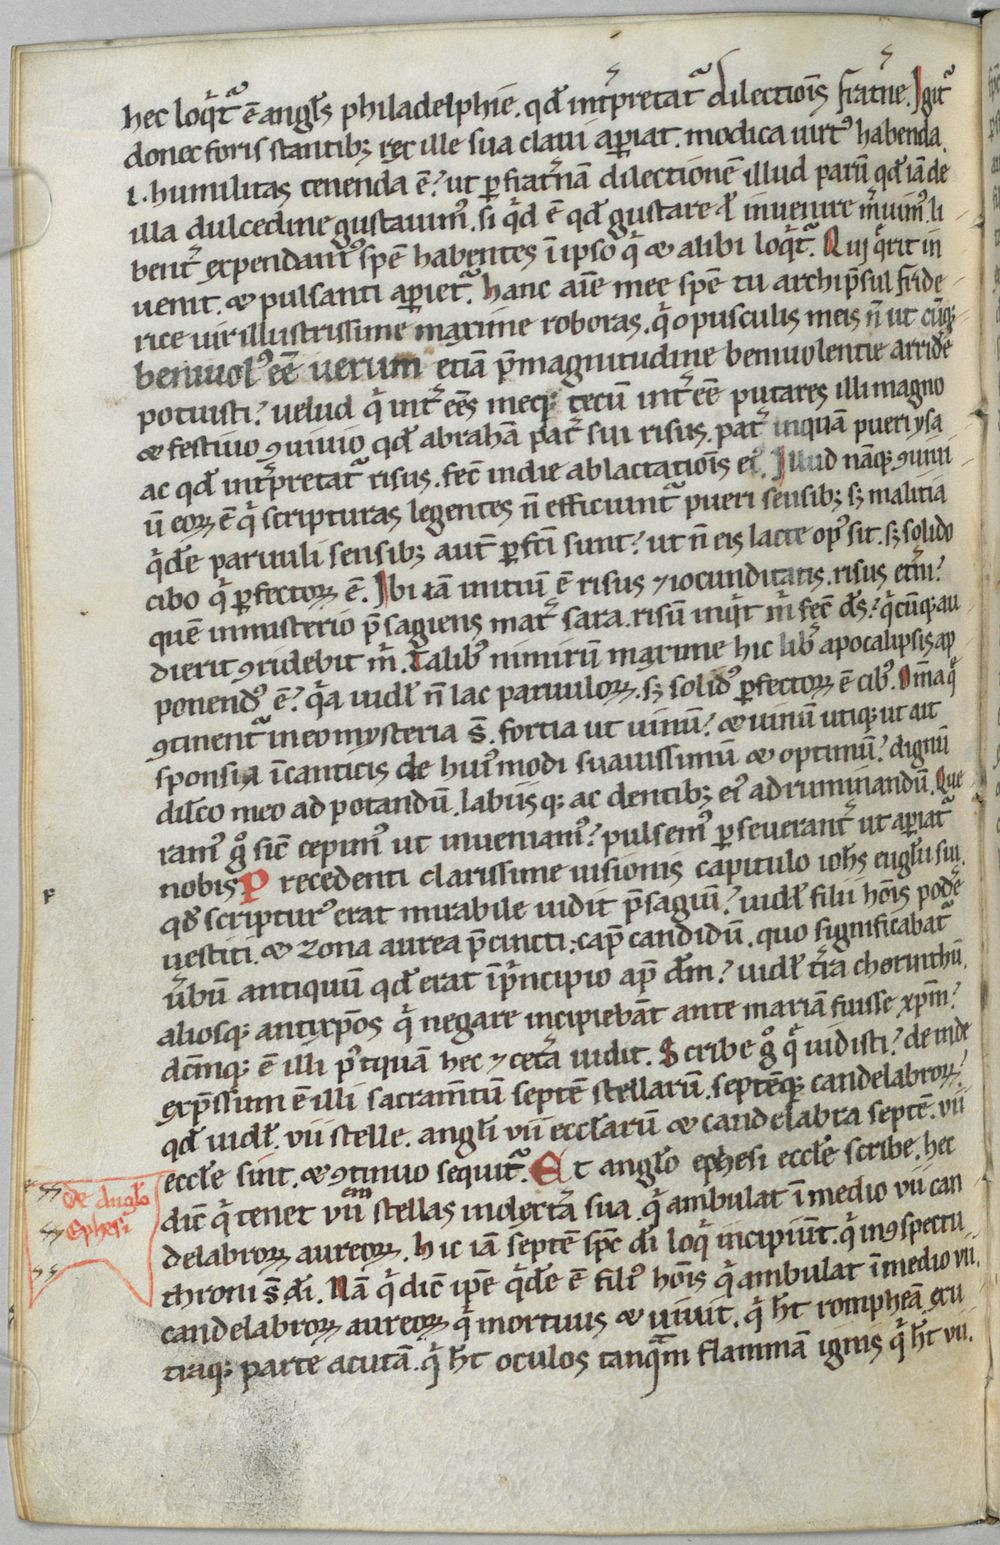 hec loq̇t᷑ ē angl̄s philadelphie. qđ int᷑pretat᷑ dilectiōis frat᷑ne. Igit᷑
donec foris stantibꝫ rec ille sua claui aꝑiat. modica uirtꝰ habenda
.i. humilitas tenenda ē? ut ꝑ frat᷑nā dilectionē illud parū qđ iā de
illa dulcedine gustauimꝰ. si qͥd ē qđ gustare ł inuenire m᷑uimꝰ. li
bent᷑ expendamꝰ spē habentes ī ipso qͥ ⁊ alibi loq̇t᷑. Qui q᷑rit in
uenit. ⁊ pulsanti aꝑiet᷑. hanc aīe mee spē tu archip̄sul fride
rice uir illustrissime maxime roboras. qͥ opusculis meis n̄ ut cūqꝫ
beniuolꝰ eē̄ uerum etiā p̄ magnitudine beniuolentie arridē
potuisti? uelud qͥ int᷑ eēs meqꝫ tecū int᷑ eē̄ putares illi magno
⁊ festiuo ꝯuiuio qđ abrahā pat᷑ sui risus. pat᷑ inquā pueri ysa
ac qđ int᷑pretat᷑ risus. fec̄ in die ablactatiōis eiꝰ. Illud nāqꝫ ꝯuiui
ū eoꝝ ē qͥ scripturas legentes n̄ efficiunt᷑ pueri sensibꝫ sꝫ malitia
qͥdē paruuli sensibꝫ aut̄ ꝑfc̄i sunt? ut n̄ eis lacte opꝰ sit. sꝫ solido
cibo qͥ ꝑfectoꝝ ē. Ibi iā initiū ē risus ⁊ iocunditatis. risus et᷑ni?
quē in misterio p̄sagiens mat᷑ sara. risū inqͥt m̄ fec̄ dš? qͥcūqꝫ au
dierit ꝯridebit m̄. Talibꝰ nimirū maxime hic lib᷑ apocalipsis ap
ponendꝰ ē? qͥa uidł n̄ lac paruuloꝝ. sꝫ solidꝰ ꝑfectoꝝ ē cibꝰ. Om̄a qͥ
ꝯtinent᷑ in eo mysteria s̄. fortia ut uinū? ⁊ uinū utiqꝫ ut ait
sponsa ī canticis de huiꝰmodi suauissimū ⁊ optimū? dignū
dił̄co meo ad potandū. labiisqꝫ ac dentibꝫ eiꝰ ad ruminandū. Que
ramꝰ gͦ sic̄ cepimꝰ ut inueniamꝰ? pulsemꝰ ꝑseuerant᷑ ut aꝑiat᷑
nobis. Precedenti clarissime uisionis capitulo ioh̄s eugl̄ii sui
qđ scripturꝰ erat mirabile uidit p̄sagiū? uidł filii hōis podē
uestiti. ⁊ zona aurea p̄cincti. cap̄ candidū. quo significabat᷑
u᷑bū antiquū qđ erat ī pͥncipio ap̄ dm̄? uidł t᷑ra chorinthū
aliosqꝫ antixp̄os qͥ negare incipiebāt ante mariā fuisse xp̄m?
dc̄mqꝫ ē illi pꝰtquā hec ⁊ cet᷑a uidit. Scribe gͦ qͥ uidisti? deinde
exp̄ssum ē illi sacram̄tū septē stellarū. septēqꝫ candelabroꝝ?
qđ uidł. uii stelle. angl̄i uii eccl̄arū ⁊ candelabra septē. uii
eccl̄e sint. ⁊ ꝯtinuo sequit᷑. Et angl̄o ephesi eccl̄e scribe. hec
dic̄ qͥ tenet uiiem stellas in dext᷑a sua. qͥ ambulat ī medio uii can
delabroꝝ aureoꝝ. hic iā septē spc̄ di loqͥ incipiūt. qͥ in ꝯspectu
throni s̄ di. Nā qͥ dic̄ ipē qͥdē ē filiꝰ hōis qͥ ambulat ī medio uii.
candelabroꝝ aureoꝝ qͥ mortuus ⁊ uiuit. qͥ h̄t rompheā exu
traqꝫ parte acutā. qͥ h̄t oculos tanqͣm flammā ignis qͥ h̄t uii.
P
De Angl̄o
Ephesi